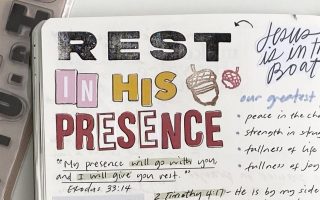 REST
IN HIS
PRESENCE
"My presence will go with you,
and I will give you rest."
Exodus 33:14
Jesus
is in the
Boat
our greatest
• peace in the cha
• strength in strug
• fullness of life
• fullness of joy
2 Timothy 4:17 - He is by my side